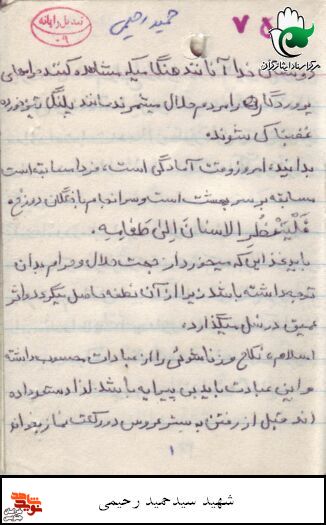 تبدیل رایانه
۰۹
حمید رحیمی
۷۵
مرکز اسناد ایثارگران
دوستان خدا آنانند هنگامیکه مشاهده کنند حرامهای
پروردگار را مردم حلال میشمرند مانند پلنگ تیرخورده
غضبناک شوند.
بدانید، امروز وقت آمادگی است، فردا مسابقه است
مسابقه بر سر بهشت است و سرانجام بازندگان دوزخ
فَلْیَنْظُرِ الانسَانَ اِلیٰ طَعَامِهِ.
باید غذایی که میخورد از جهت حلال و حرام بدان
توجه داشته باشد زیرا از آن نطفه حاصل میگردد و اثر
عمیق در نسل میگذارد.
اسلام، نکاح و زناشوئی را از عبادات محسوب داشته
و این عبادت باید بی پیرایه باشد لذا دستور داده
اند قبل از رفتن به بستر عروس دو رکعت نماز بخواند
۱
شهید سیدحمید رحیمی